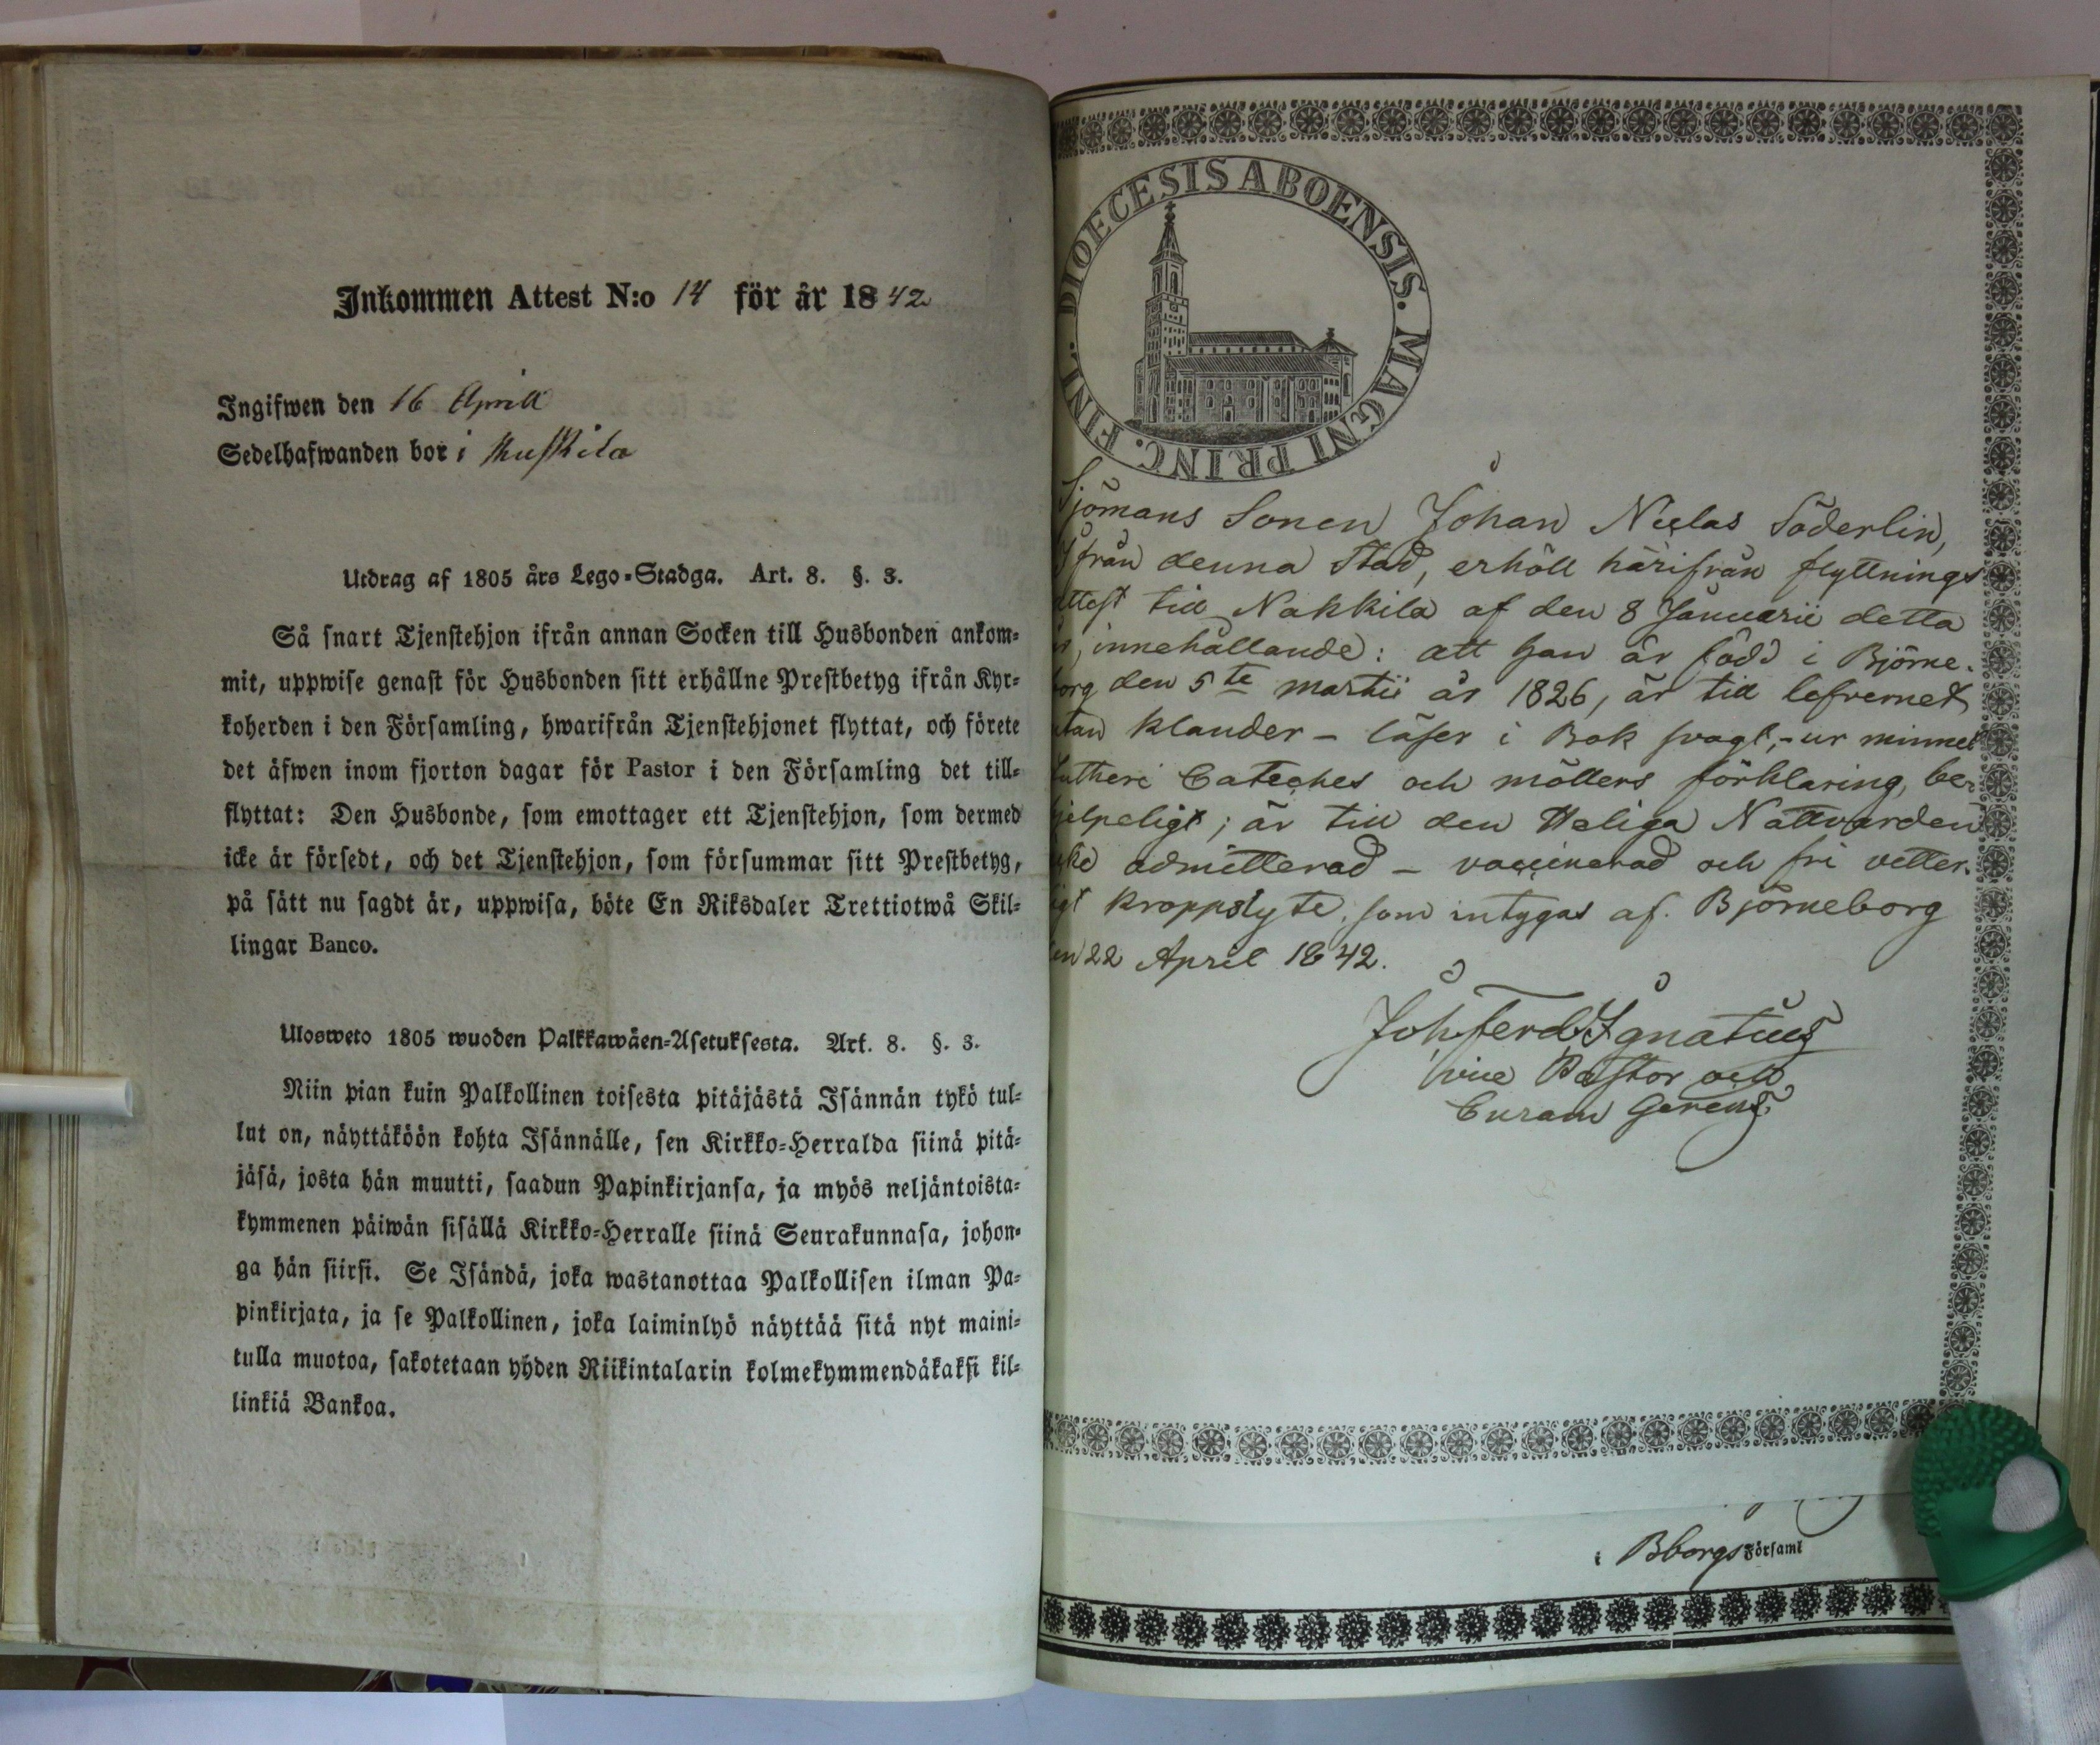 Inkommen Attest N:o 14 för år 1842
Ingifwen den 16 Aprill
Sedelhafwanden bor i
Utdrag af 1805 års Lego-Stadga. Art. 8. §. 3.
Så snart Tjenstehjon ifrån annan Socken till Husbonden ankom-
mit, uppwise genast för Husbonden sitt erhållne Prestbetyg ifrån Kyr-
koherden i den Församling, hwarifrån Tjenstehjonet flyttat, och förete
det äfwen inom fjorton dagar för Pastor i den Församling det till-
flyttat: Den Husbonde, som emottager ett Tjenstehjon, som dermed
icke är försedt, och det Tjenstehjon, som försummar sitt Prestbetyg,
på sätt nu sagdt är, uppwisa, böte En Riksdaler Trettiotwå Skil-
lingar Banco.
Ulosweto 1805 wuoden Palkkawäen-Asetuksesta. Art. 8. §. 3.
Niin pian kuin Palkollinen toisesta pitäjästä Isännän tykö tul-
lut on, näyttäköön kohta Isännälle, sen Kirkko-Herralda siinä pitä-
jäsä, josta hän muutti, saadun Papinkirjansa, ja myös neljäntoista-
kymmenen päiwän sisällä Kirkko-Herralle siinä Seurakunnasa, johon-
ga hän siirsi. Se Isändä, joka wastanottaa Palkollisen ilman Pa-
pinkirjata, ja se Palkollinen, joka laiminlyö näyttää sitä nyt maini-
tulla muotoa, sakotetaan yhden Riikintalarin kolmekymmendäkaksi kil-
linkiä Bankoa.
DIOECESIS ABOENSIS. MAGNI PRINC. FINL.
Sjömans Sonen Johan Niclas Söderlin,
ifrån denna Stad, erhöll härifrån flyttnings
attest till Nakkila af den 8 Januarii detta
år, innehållande: att han är född i Björne-
borg den 5te martii år 1826, är till lefvernet
utan klander – läser i Bok svagt, – ur minnet
Lutheri Cateches och möllers förklaring, be-
hjelpeligt; är till den Heliga Nattvarden
icke admitterad – vaccinerad och fri vetter-
ligt kroppslyte, som intygas af. Björneborg
den 22 April 1842.
Joh. Ferd. Ignatius
vice Pastor och
Curam Gerens.
i Bborgs Församl